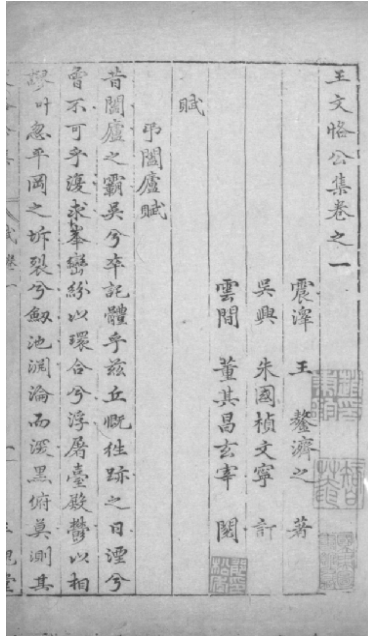 王文恪公集卷之一
震澤 王 鏊濟之 著
吳興 朱國楨文寧 訂
雲間 董其昌玄宰 閱
賦
弔闔廬賦
昔闔廬之霸吳兮卒託體乎兹丘慨徃跡之日湮兮
曾不可乎復求峯巒紛以環合兮浮屠臺殿鬱以相
樛叶忽平岡之坼裂兮劔池淵淪而深黒俯莫測其